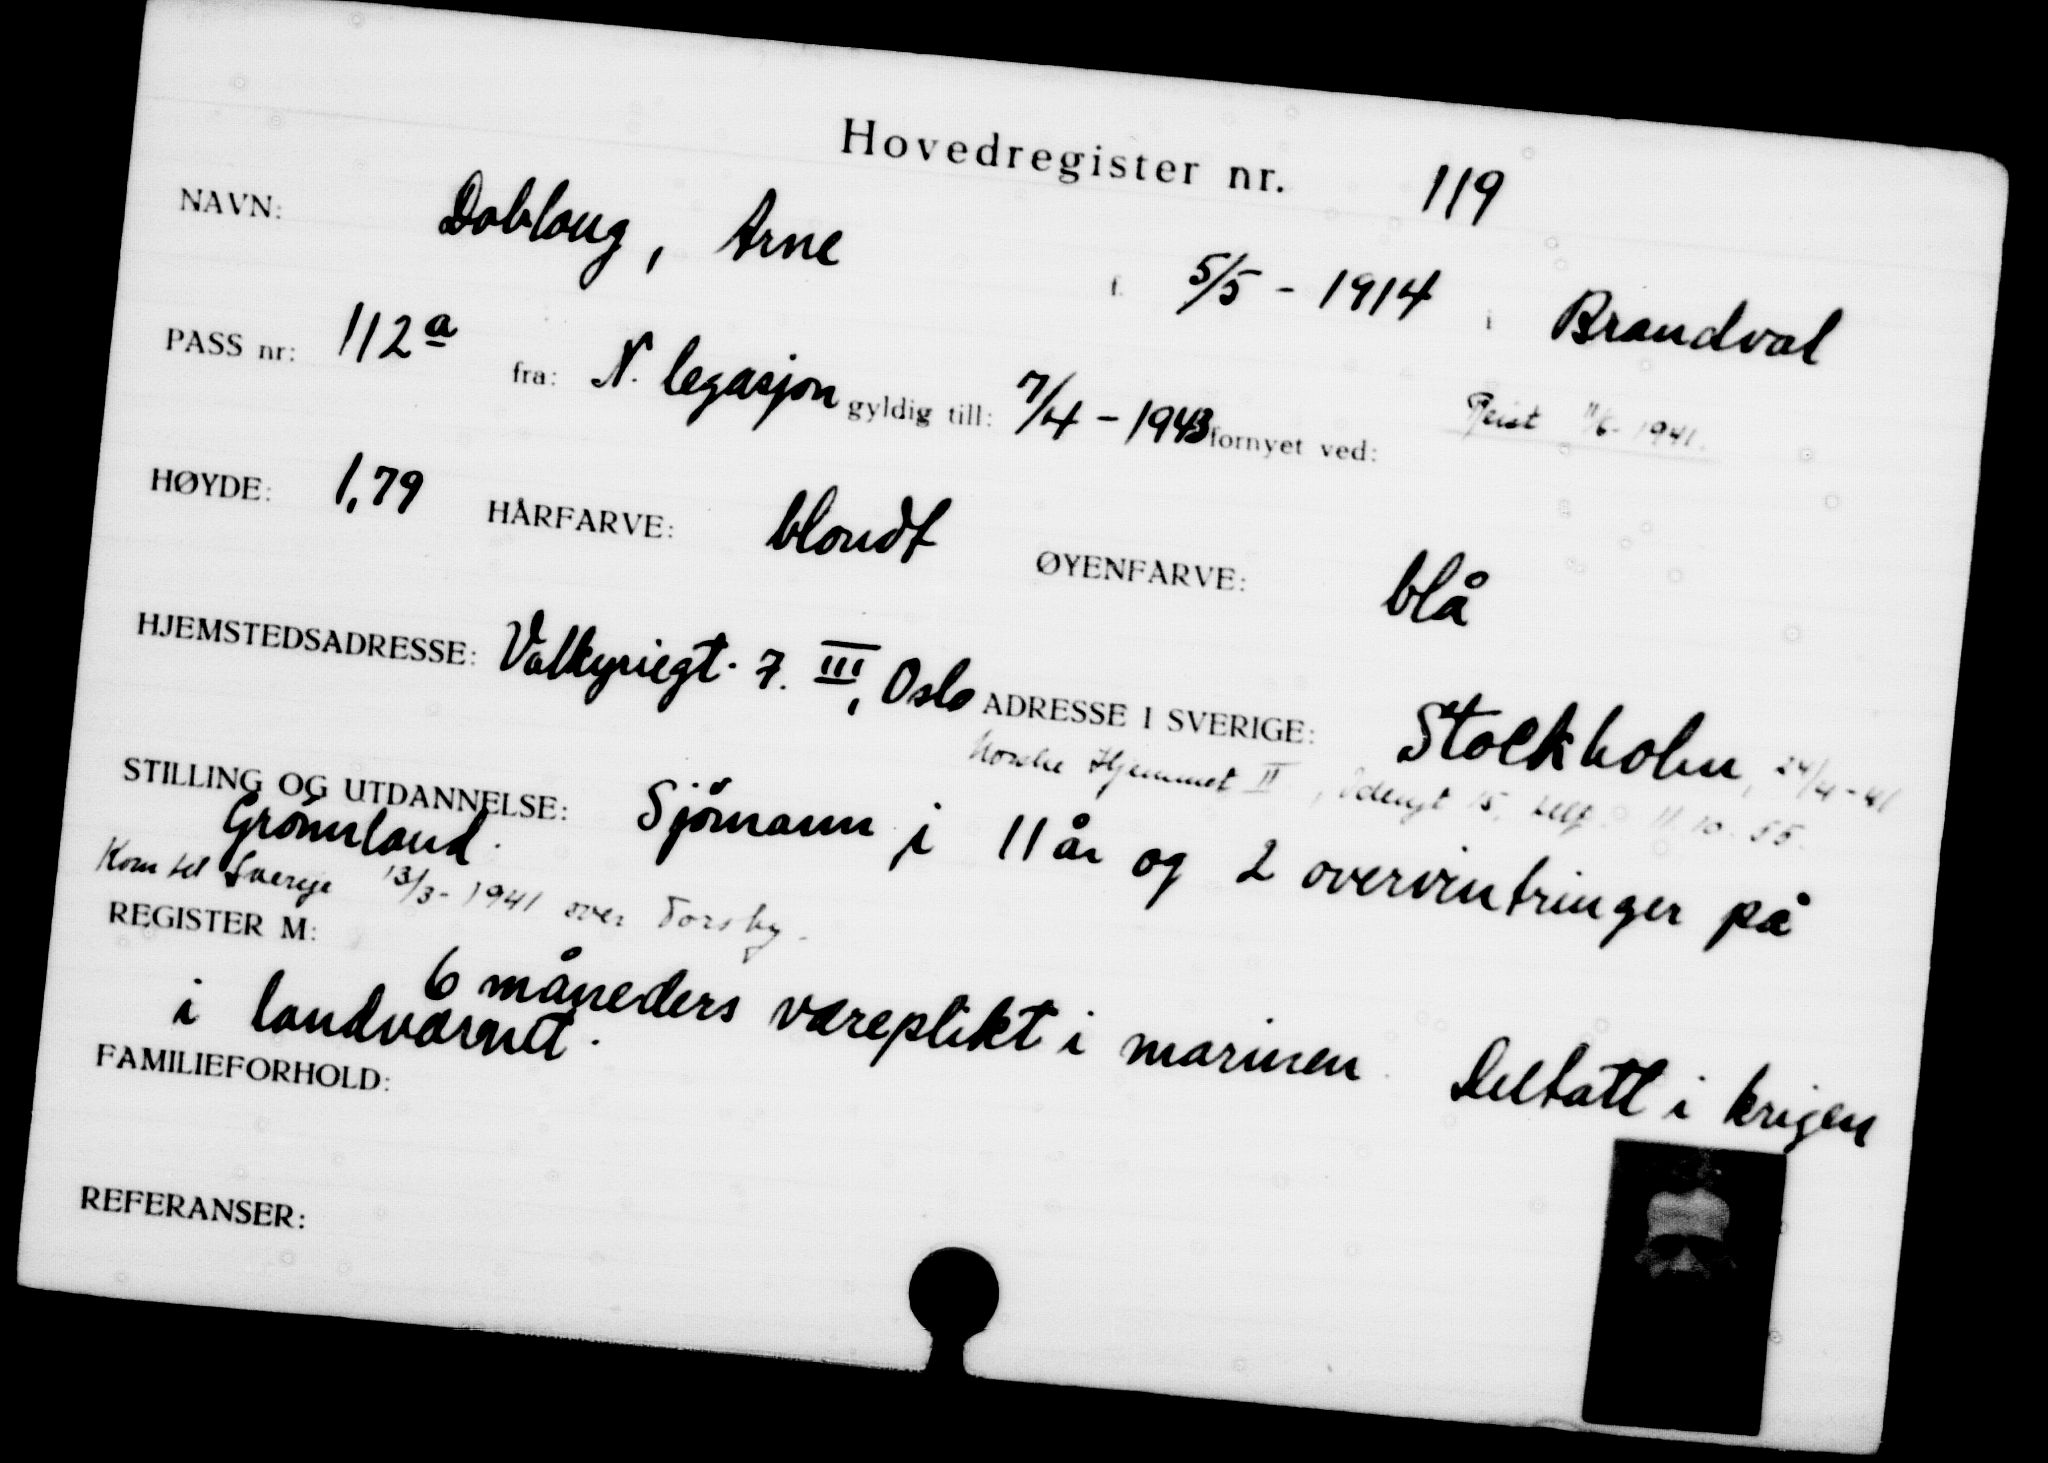 Hovedregister nr. 119
NAVN: Dobloug, Arne f. 5/5 - 1914 i Brandval
PASS nr: 112 a fra: N. legasjon gyldig till: 7/4 - 1943 fornyet ved: Reist 11/6 - 1941.
HØYDE: 1,79 HÅRFARVE: blondt ØYENFARVE: blå
HJEMSTEDSADRESSE: Valkyriegt. 7. III, Oslo ADRESSE I SVERIGE: Stockholm, 24/4 - 41
Norske Hjemmet II, 15, telf. 11 10 55.
STILLING OG UTDANNELSE: Sjömann i 11 år og 2 overvintringer på
Grönnland.
Kom til Sverige 13/3 - 1941 over Torsby.
REGISTER M:
6 måneders væreplikt i marinen. Deltatt i krigen
i landvärnet.
FAMILIEFORHOLD:
REFERANSER: